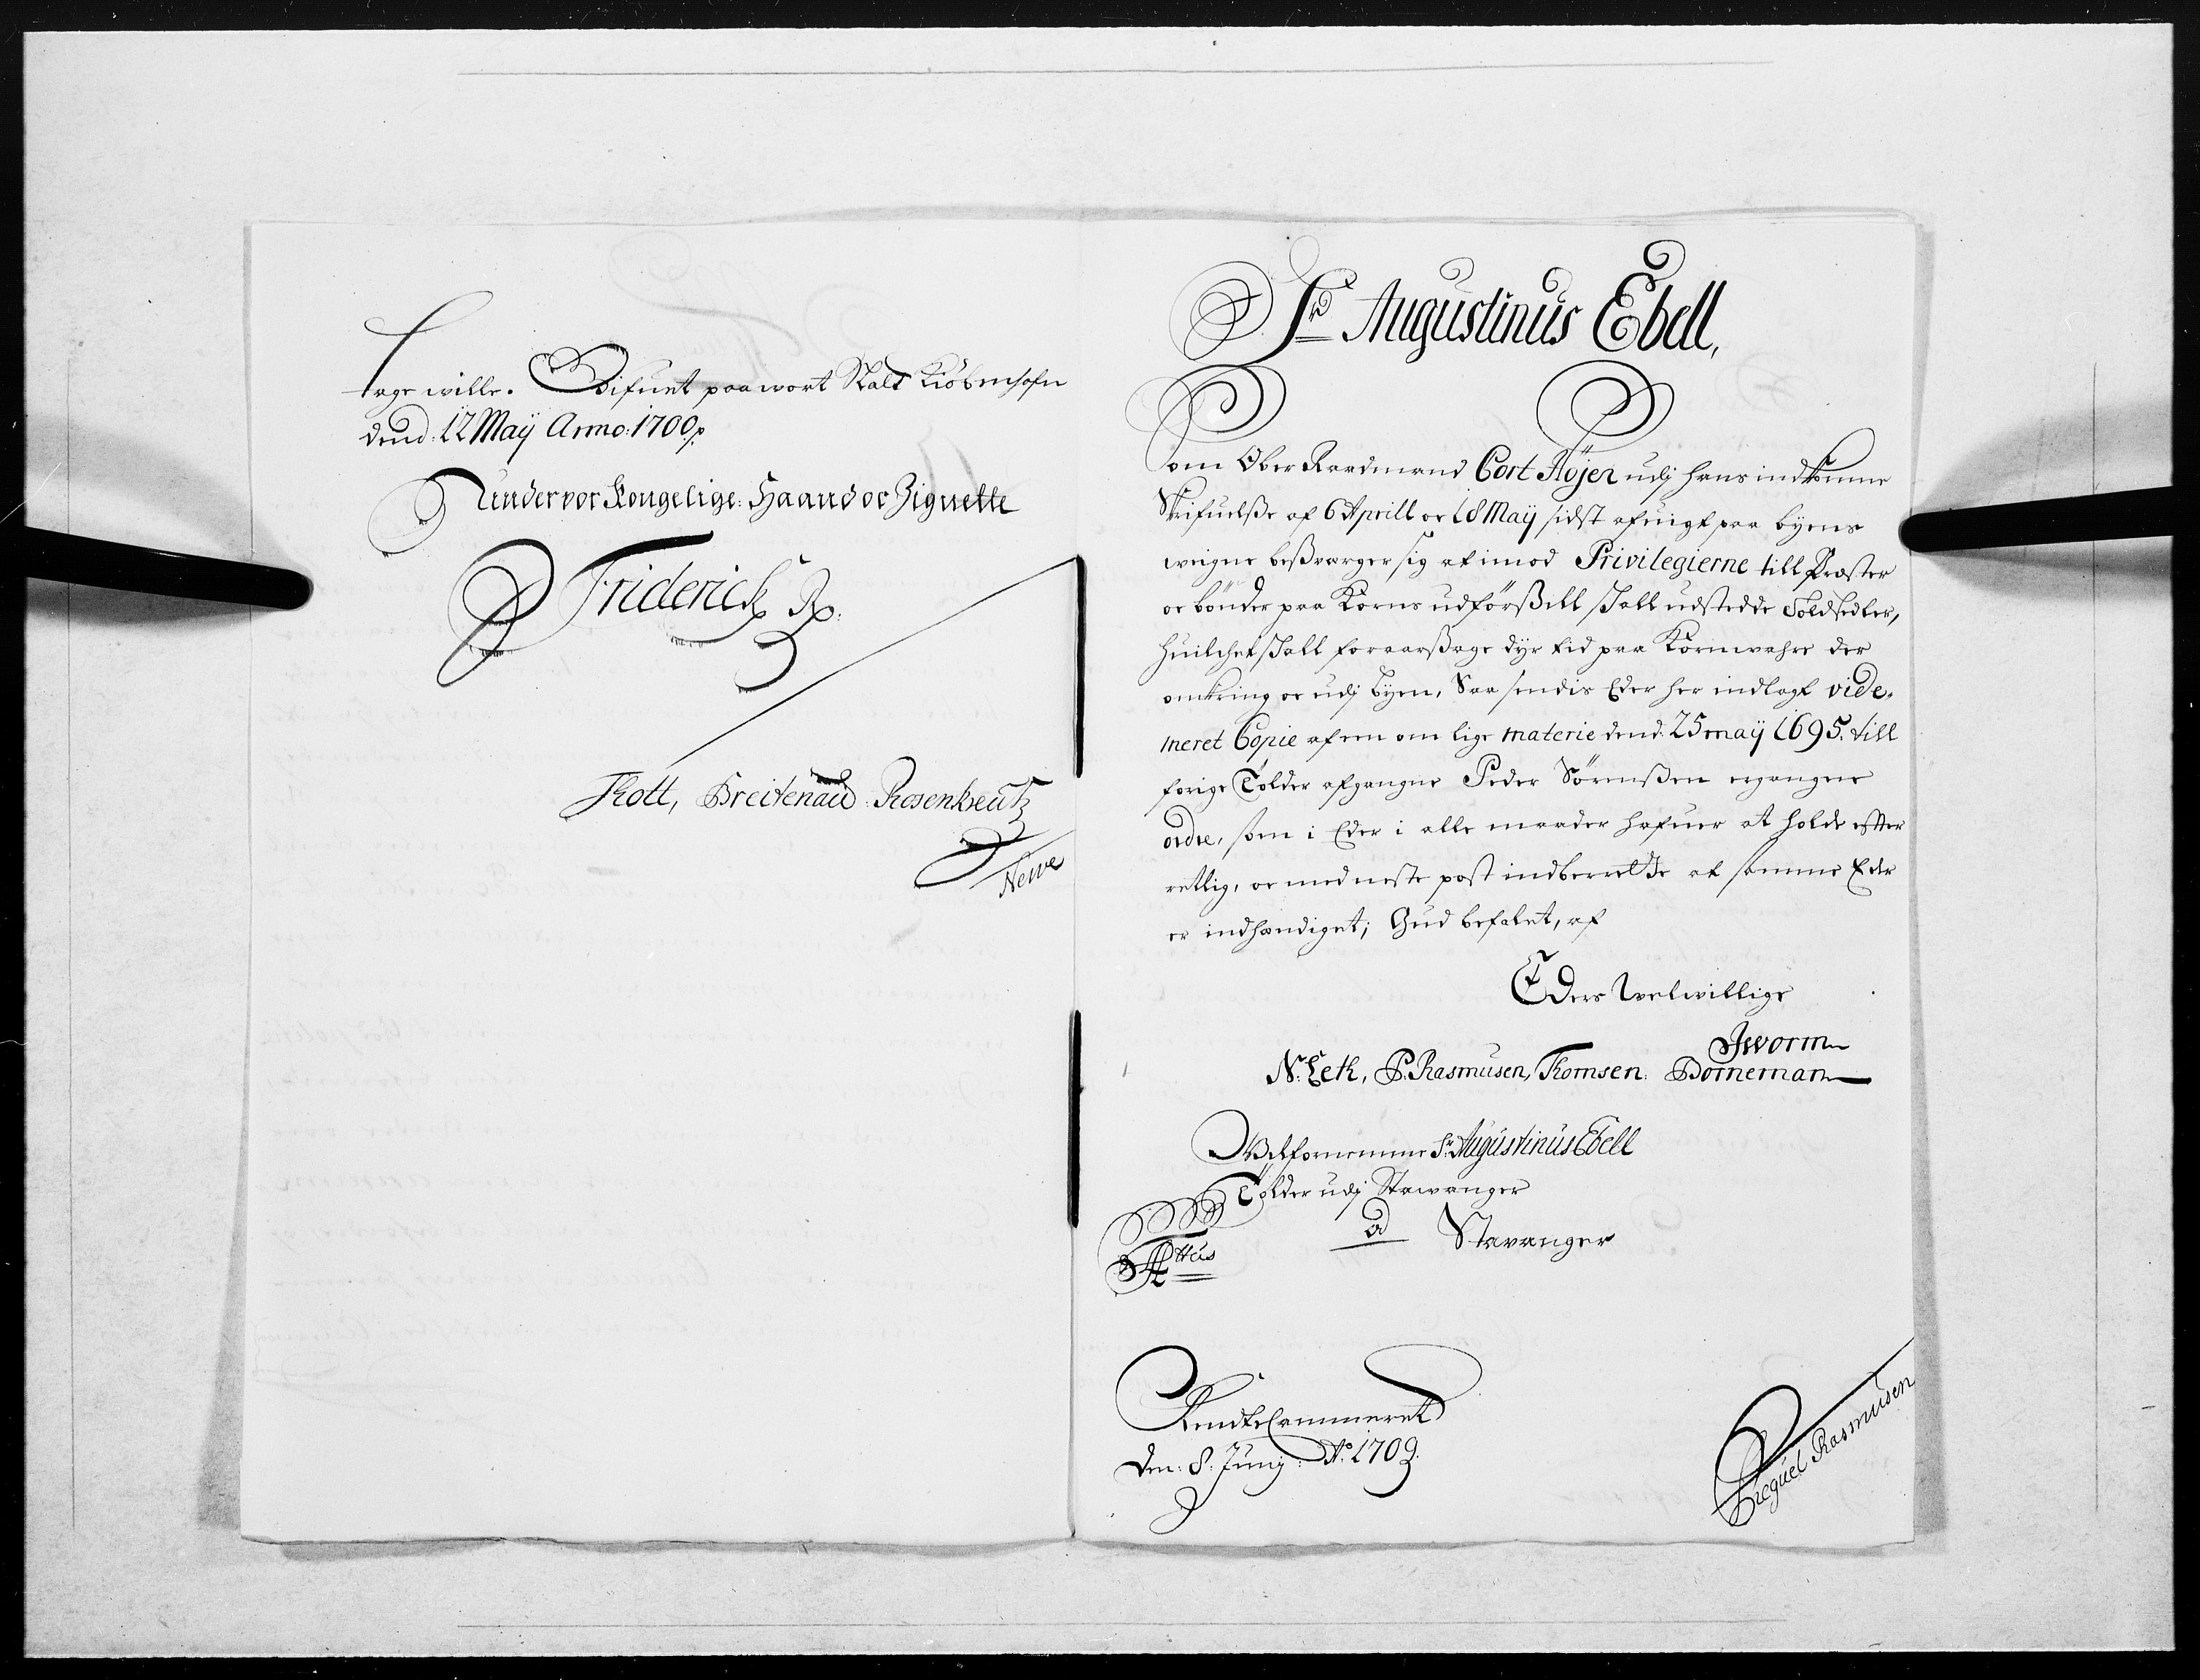 tage wille. Skrifuet paa wort Slott Kiöbenhafn
dend: 12 Maÿ Anno: 1700 p
Under vor Kongelige: Haand oc Zignette
Friderich R:
Skott, Breitenaŭ. Rosenkreutz
Neve
Sr Augustinus Ebell,
Som Ober Raadmand Cort Höjer udj hans indkomne
Skrifuelsse af 6 Aprill oc 18 Maÿ sidst afuigt paa byens
weigne besverger sig at imod Privilegierne till Præster
oc bönder paa Korns udförsell skall udstedde Toldsedler,
huilchet skall foraarsage dÿr tid paa Kornwahre der
omkring oc udj bÿen, Saa sendis Eder her indlagt vide-
meret Copie af en om lige materie dend: 25 maÿ 1695. till
forige Tolder afgangne Peder Sörensen ergangne
ordre, som i Eder i alle maader hafuer at holde effter
rettlig, oc med neste post indberrette at samme Eder
er indhændiget; Gud befalet, af
Eders Welwillige
Jworm
N: Leth, P. Rasmusen, Thomsen. Dorneman
Welfornemme Sr. Augustinus Ebell
Tolder udj Stawanger
a Stavanger
Rendte Cammeret
Den: 8. Junj: Ao. 1709.
Prequel Rasmusen